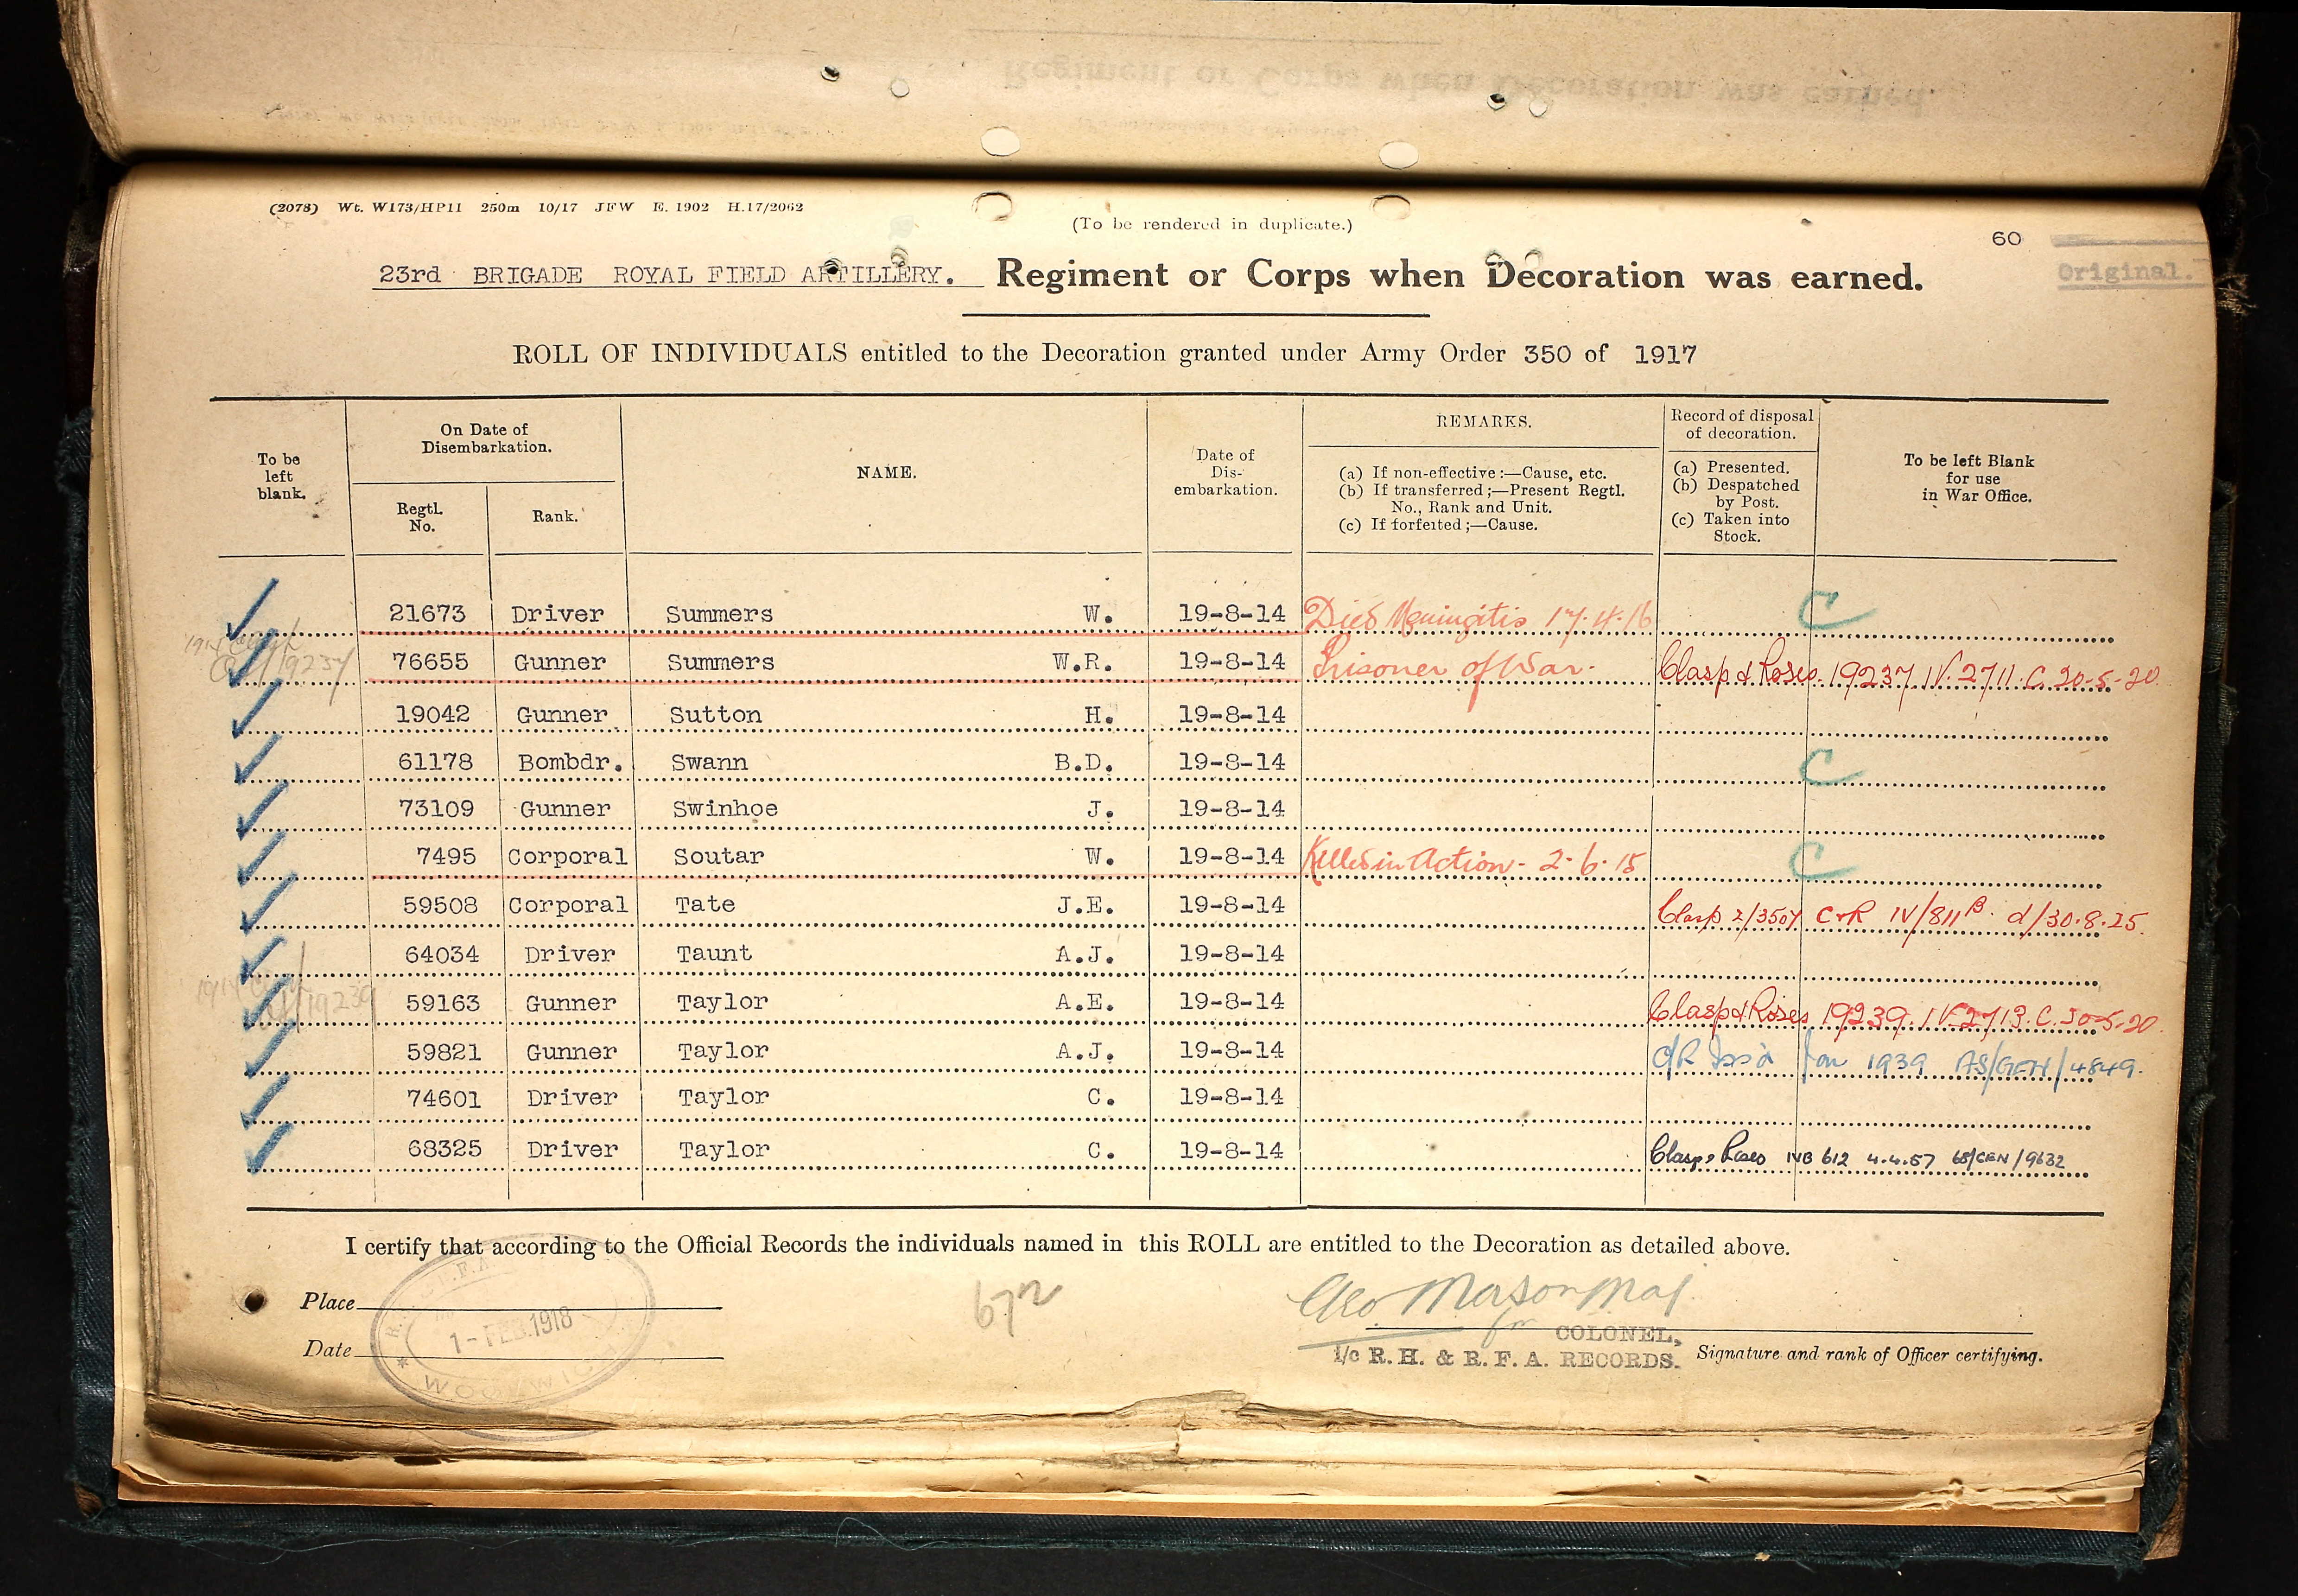 (2078) Wt. W173/HP11 250m 10/17 JFW E. 1902 H.17/2062
(To be rendered in duplicate.)
60
Original.
23rd BRIGADE ROYAL FIELD ARTILLERY. Regiment or Corps when Decoration was earned.
ROLL OF INDIVIDUALS entitled to the Decoration granted under Army Order 350 of 1917
To be left blank.
On Date of Disembarkation.
Regtl. No.
Rank.
NAME.
Date of Dis-embarkation.
REMARKS.
(a) If non-effective :—Cause, etc.
(b) If transferred ;—Present Regtl. No., Rank and Unit.
(c) If forfeited ;—Cause.
Record of disposal of decoration.
(a) Presented.
(b) Despatched by Post.
(c) Taken into Stock.
To be left Blank for use in War Office.
21673 Driver Summers W. 19-8-14 Died Meningitis 17.4.16 C
76655 Gunner Summers W.R. 19-8-14 Prisoner of War. Clasp & Roses 19237 IV.2711.C.20-5-20
19042 Gunner Sutton H. 19-8-14
61178 Bombdr. Swann B.D. 19-8-14 C
73109 Gunner Swinhoe J. 19-8-14
7495 Corporal Soutar W. 19-8-14 Killed in Action - 2.6.15 C
59508 Corporal Tate J.E. 19-8-14 Clasp 2/3507 C&R IV/811B d/30.8.25.
64034 Driver Taunt A.J. 19-8-14
59163 Gunner Taylor A.E. 19-8-14 Clasp & Roses 19239. IV 2713.C.
59821 Gunner Taylor A.J. 19-8-14 C/R Iss'd Jan 1939 AS/GEN/4849.
74601 Driver Taylor C. 19-8-14
68325 Driver Taylor C. 19-8-14 Clasp & Roses IVB 612 4.4.57 68/GEN/9632
I certify that according to the Official Records the individuals named in this ROLL are entitled to the Decoration as detailed above.
Place
Date
1-FEB.1918
WOOLWICH
Geo. Mason Maj.
for COLONEL,
I/c R. H. & R. F. A. RECORDS. Signature and rank of Officer certifying.